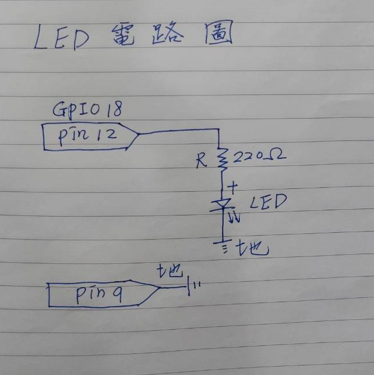 LED 電路圖
GPIO 18
pin 12
R 220Ω
+
LED
地
地
pin 9